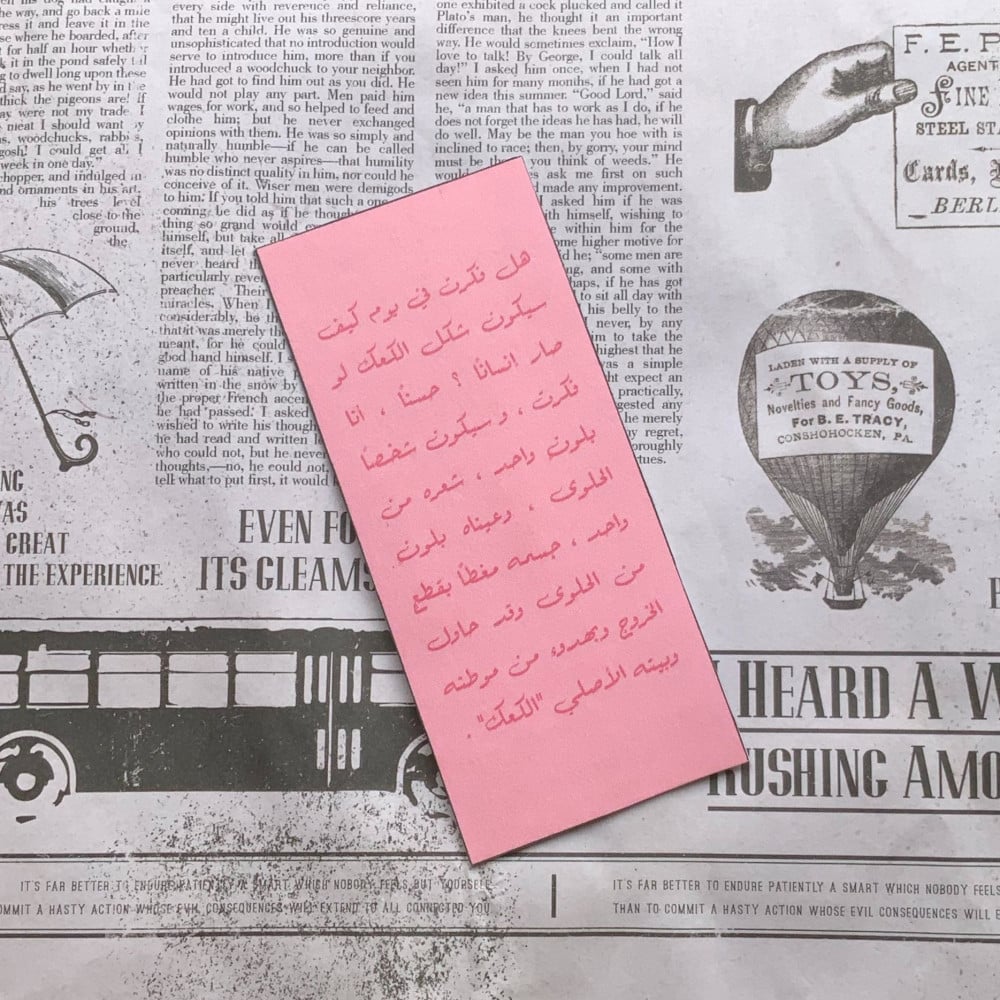 هل فكرت في يوم كيف
سيكون شكل الكعك لو
صار انسانًا ؟ حسنًا ، انا
فكرت ، و سيكون شخصًا
بلون واحد ، شعره من
الحلوى ، وعيناه بلون
واحد ، جسمه مغطأ بقطع
من الحلوى وقد حاول
الخروج وبهدوء من موطنه
وبيته الأصلي "الكعك".
the way, and go back a mile
ress it and leave it in the
se where he boarded, after
for half an hour whether
k it in the pond safely till
g to dwell long upon these
d say, as he went by in the
thick the pigeons are! If
ay were not my trade, I
meat I should want by
s, woodchucks, rabbits,
gosh! I could get all I
week in one day."
chopper, and indulged in
nd ornaments in his art.
his trees level
close to the
ground,
the
every side with reverence and reliance,
that he might live out his threescore years
and ten a child. He was so genuine and
unsophisticated that no introduction would
serve to introduce him, more than if you
introduced a woodchuck to your neighbor.
He had got to find him out as you did. He
would not play any part. Men paid him
wages for work, and so helped to feed and
clothe him; but he never exchanged
opinions with them. He was so simply and
naturally humble—if he can be called
humble who never aspires—that humility
was no distinct quality in him, nor could he
conceive of it. Wiser men were demigods
to him. If you told him that such a one
coming, he did as if he though
thing so grand would ex
himself, but take all
itself, and let
never heard
particularly reve
preacher. Their
miracles. When I
considerably, he
that it was merely th
meant, for he could
good hand himself. I s
name of his native
written in the snow by
the proper French accen
he had passed. I asked
wished to write his though
he had read and written l
who could not, but he never
thoughts,—no, he could not,
tell what to put first, it would
one exhibited a cock plucked and called it
Plato's man, he thought it an important
difference that the knees bent the wrong
way. He would sometimes exclaim, "How I
love to talk! By George, I could talk all
day!" I asked him once, when I had not
seen him for many months, if he had got a
new idea this summer. "Good Lord," said
he, "a man that has to work as I do, if he
does not forget the ideas he has had, he will
do well. May be the man you hoe with is
inclined to race; then, by gorry, your mind
must be the you think of weeds." He
would ask me first on such
made any improvement.
asked him if he was
ith himself, wishing to
e within him for the
me higher motive for
d he; "some men are
ng, and some with
haps, if he has got
to sit all day with
his belly to the
never, by any
im to take the
highest that he
as a simple
ht expect an
practically,
gested any
he merely
y regret,
oroughly
rtues.
F. E. P
AGENT
FINE
STEEL ST
Cards,
BERL
LADEN WITH A SUPPLY OF
TOYS,
Novelties and Fancy Goods,
For B. E. TRACY,
CONSHOHOCKEN, PA.
NG
AS
GREAT
THE EXPERIENCE
EVEN FO
ITS GLEAMS
HEARD A W
RUSHING AMO
IT'S FAR BETTER TO ENDURE PATIENTLY A SMART WHICH NOBODY FEELS BUT YOURSELF
OMMIT A HASTY ACTION WHOSE EVIL CONSEQUENCES WILL EXTEND TO ALL CONNECTED YOU
IT'S FAR BETTER TO ENDURE PATIENTLY A SMART WHICH NOBODY FEELS
THAN TO COMMIT A HASTY ACTION WHOSE EVIL CONSEQUENCES WILL E